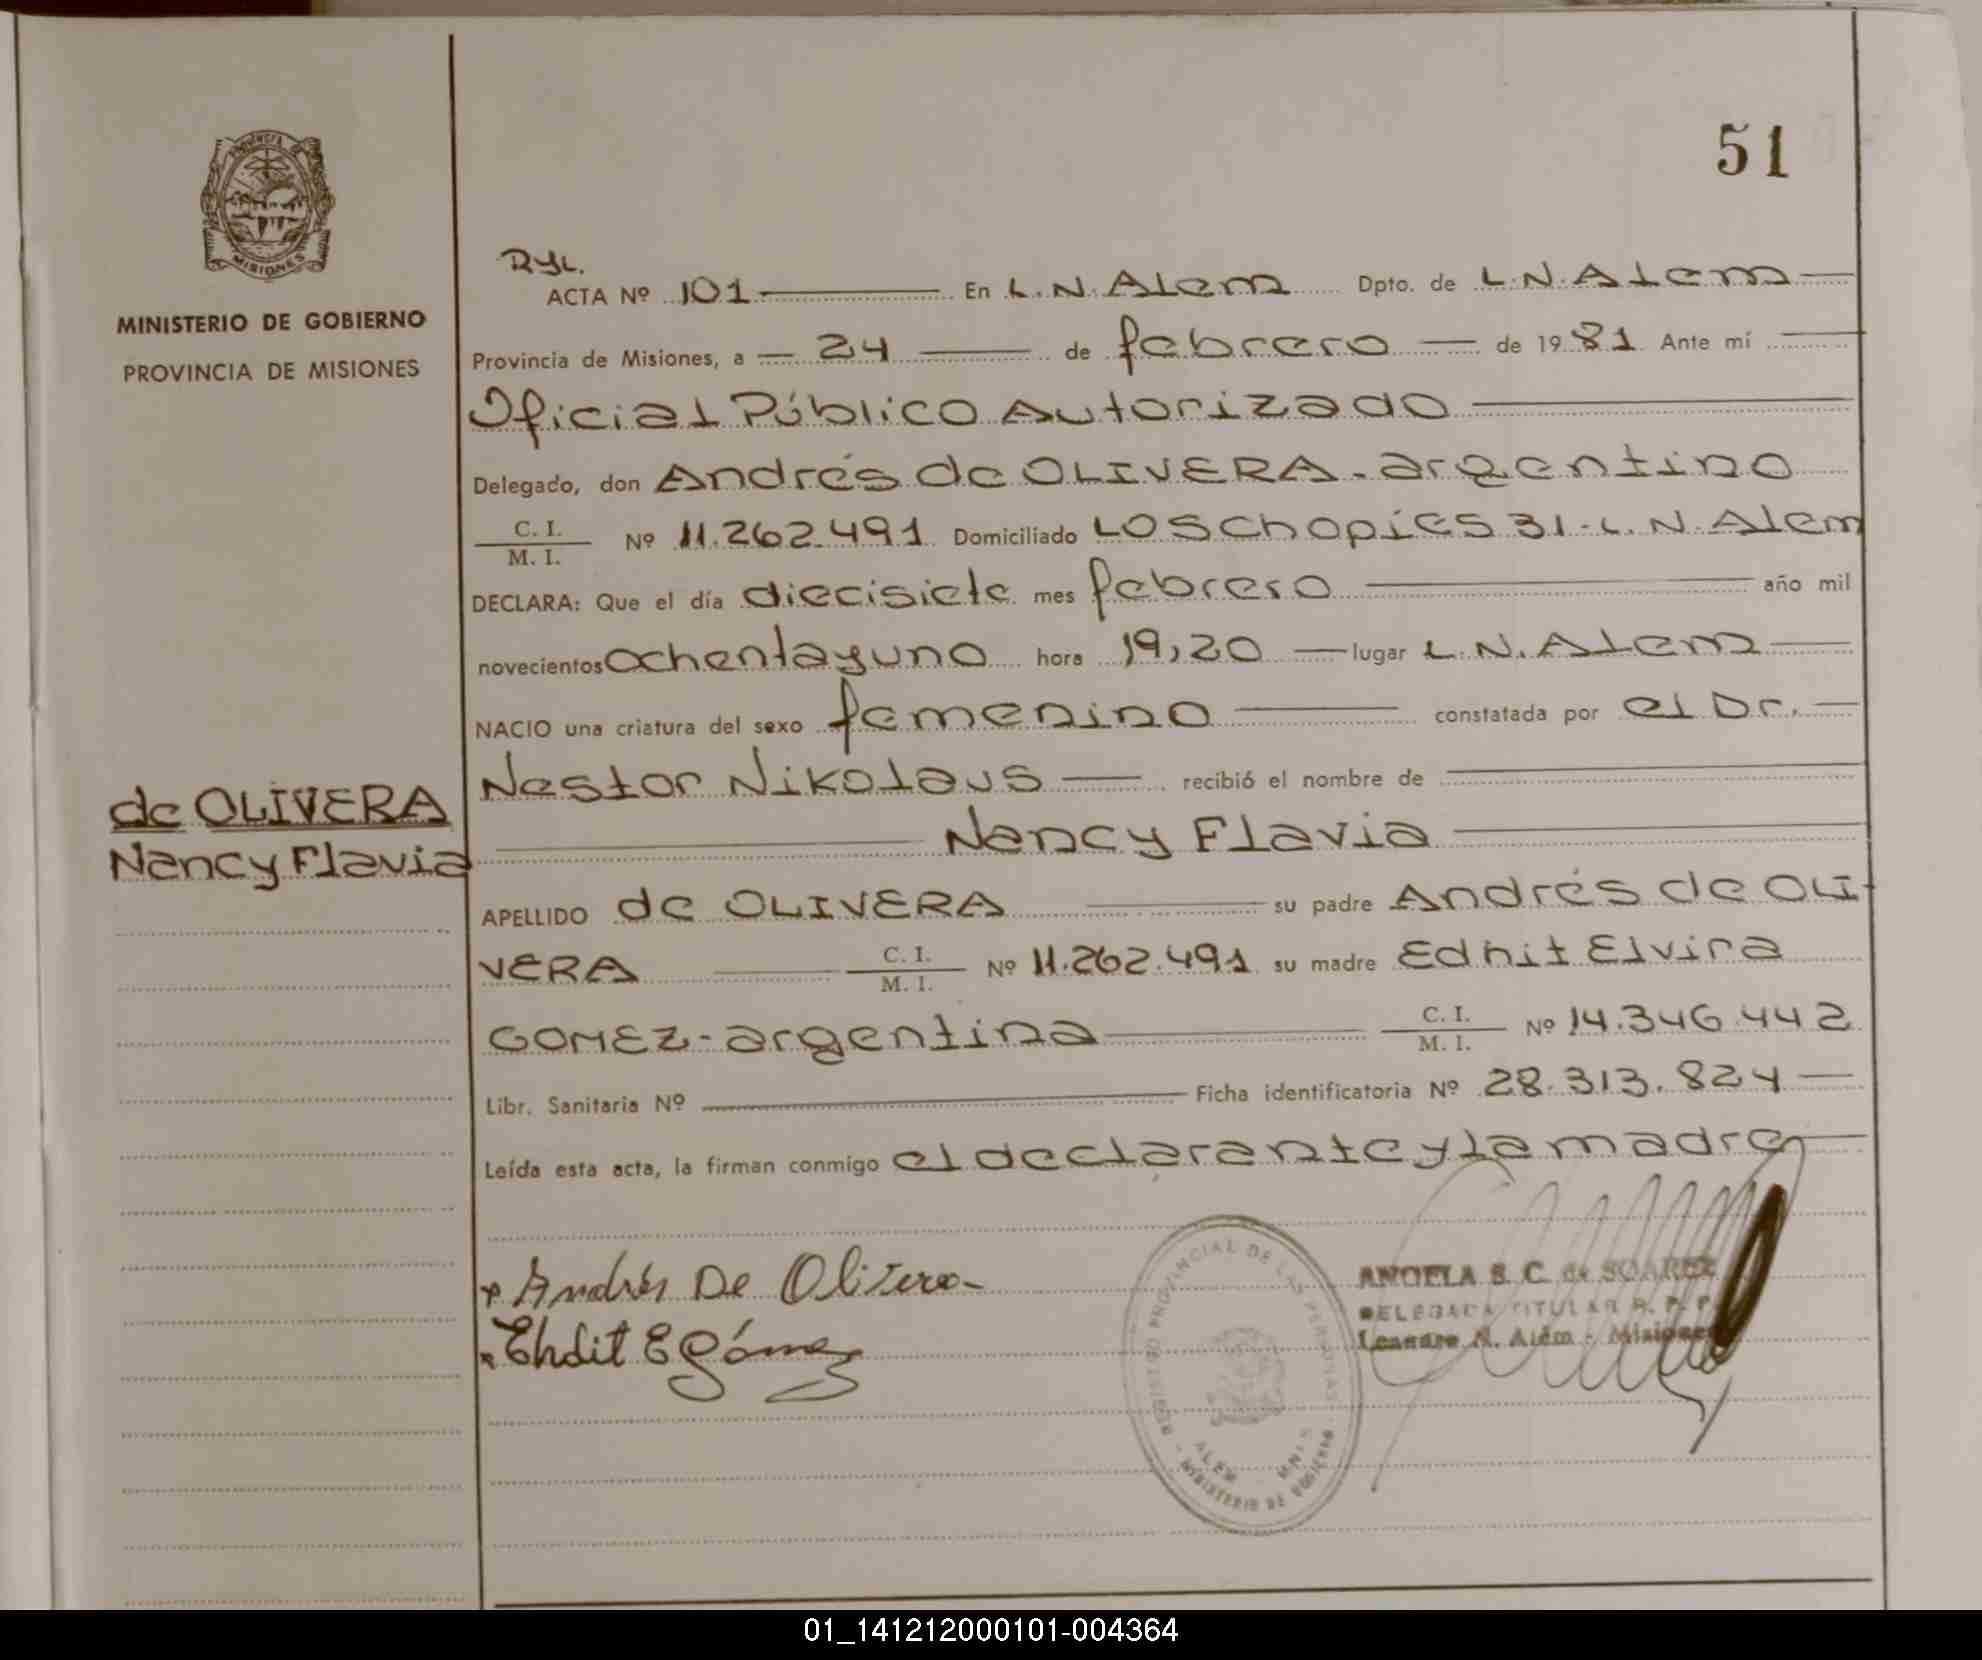 51
PROVINCIA DE
MISIONES
MINISTERIO DE GOBIERNO
PROVINCIA DE MISIONES
RyL.
ACTA Nº 101 En L.N.Alem Dpto. de L.N.Alem
Provincia de Misiones, a 24 de febrero de 1981 Ante mí
Oficial Público Autorizado
Delegado, don Andrés de OLIVERA-argentino
C. I.
M. I. Nº 11.262.491 Domiciliado Los Chopíes 31-L.N.Alem
DECLARA: Que el día diecisiete mes febrero año mil
novecientos ochenta y uno hora 19,20 lugar L.N.Alem
NACIO una criatura del sexo femenino constatada por el Dr.
Nestor Nikolaus recibió el nombre de
Nancy Flavia
de OLIVERA
Nancy Flavia
APELLIDO de OLIVERA su padre Andrés de OLI-
VERA C. I.
M. I. Nº 11.262.491 su madre Edhit Elvira
GOMEZ-argentina C. I.
M. I. Nº 14.346.442
Libr. Sanitaria Nº Ficha identificatoria Nº 28.313.824
Leída esta acta, la firman conmigo el declarante y la madre
Andrés De Olivera
Ehdit E Gómez
REGISTRO PROVINCIAL DE LAS PERSONAS
ALEM MNES
MINISTERIO DE GOBIERNO
ANGELA S. C. de SUAREZ
DELEGADA TITULAR R. P. P.
Leandro N. Alem - Misiones
01_141212000101-004364